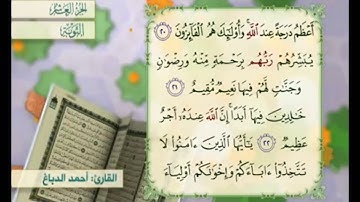 الجزء العاشر
التوبة
أَعْظَمُ دَرَجَةً عِندَ ٱللَّهِ وَأُوْلَٰٓئِكَ هُمُ ٱلْفَآئِزُونَ ٢٠
يُبَشِّرُهُمْ رَبُّهُم بِرَحْمَةٍ مِّنْهُ وَرِضْوَٰنٍ
وَجَنَّٰتٍ لَّهُمْ فِيهَا نَعِيمٌ مُّقِيمٌ ٢١
خَٰلِدِينَ فِيهَآ أَبَدًا إِنَّ ٱللَّهَ عِندَهُۥٓ أَجْرٌ
عَظِيمٌ ٢٢ يَٰٓأَيُّهَا ٱلَّذِينَ ءَامَنُوا۟ لَا
تَتَّخِذُوٓا۟ ءَابَآءَكُمْ وَإِخْوَٰنَكُمْ أَوْلِيَآءَ
القارئ: أحمد الدباغ